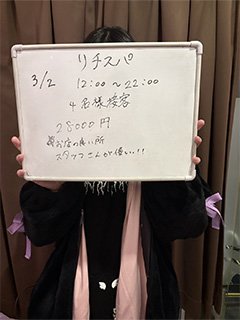 リチスパ
3/2 12:00〜22:00
4名様接客
28000円
お店の良い所
スタッフさんが優しい!!